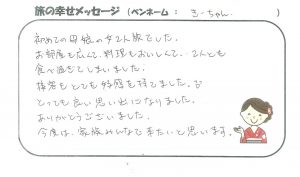 旅の幸せメッセージ (ペンネーム : きーちゃん )
初めての母娘の女2人旅でした。
お部屋も広くて、料理もおいしくて、2人とも
食べ過ぎてしまいました。
接客もとても好感を持てました。
とっても良い思い出になりました。
ありがとうございました。
今度は、家族みんなで来たいと思います。